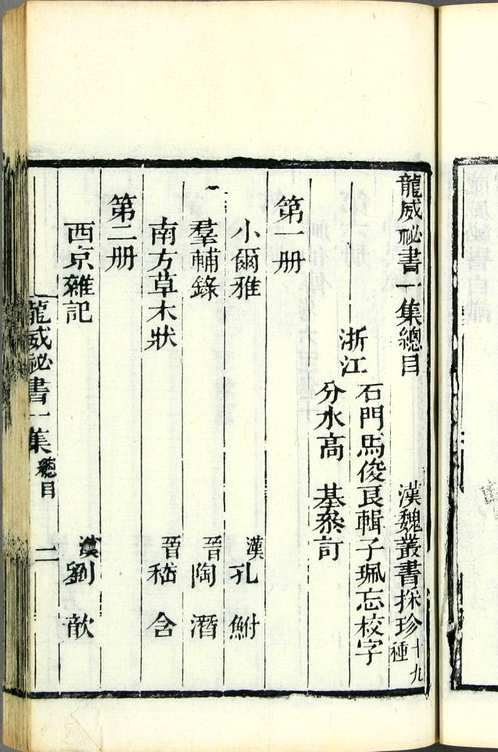 龍威祕書一集總目 漢魏叢書採珍十九種
浙江 石門馬俊良輯子珮忘校字
分水高 基參訂
第一册
小爾雅 漢孔 鮒
羣輔錄 晉陶 潛
南方草木狀 晉嵇 含
第二册
西京雜記 漢劉 歆
龍威祕書一集 總目 二